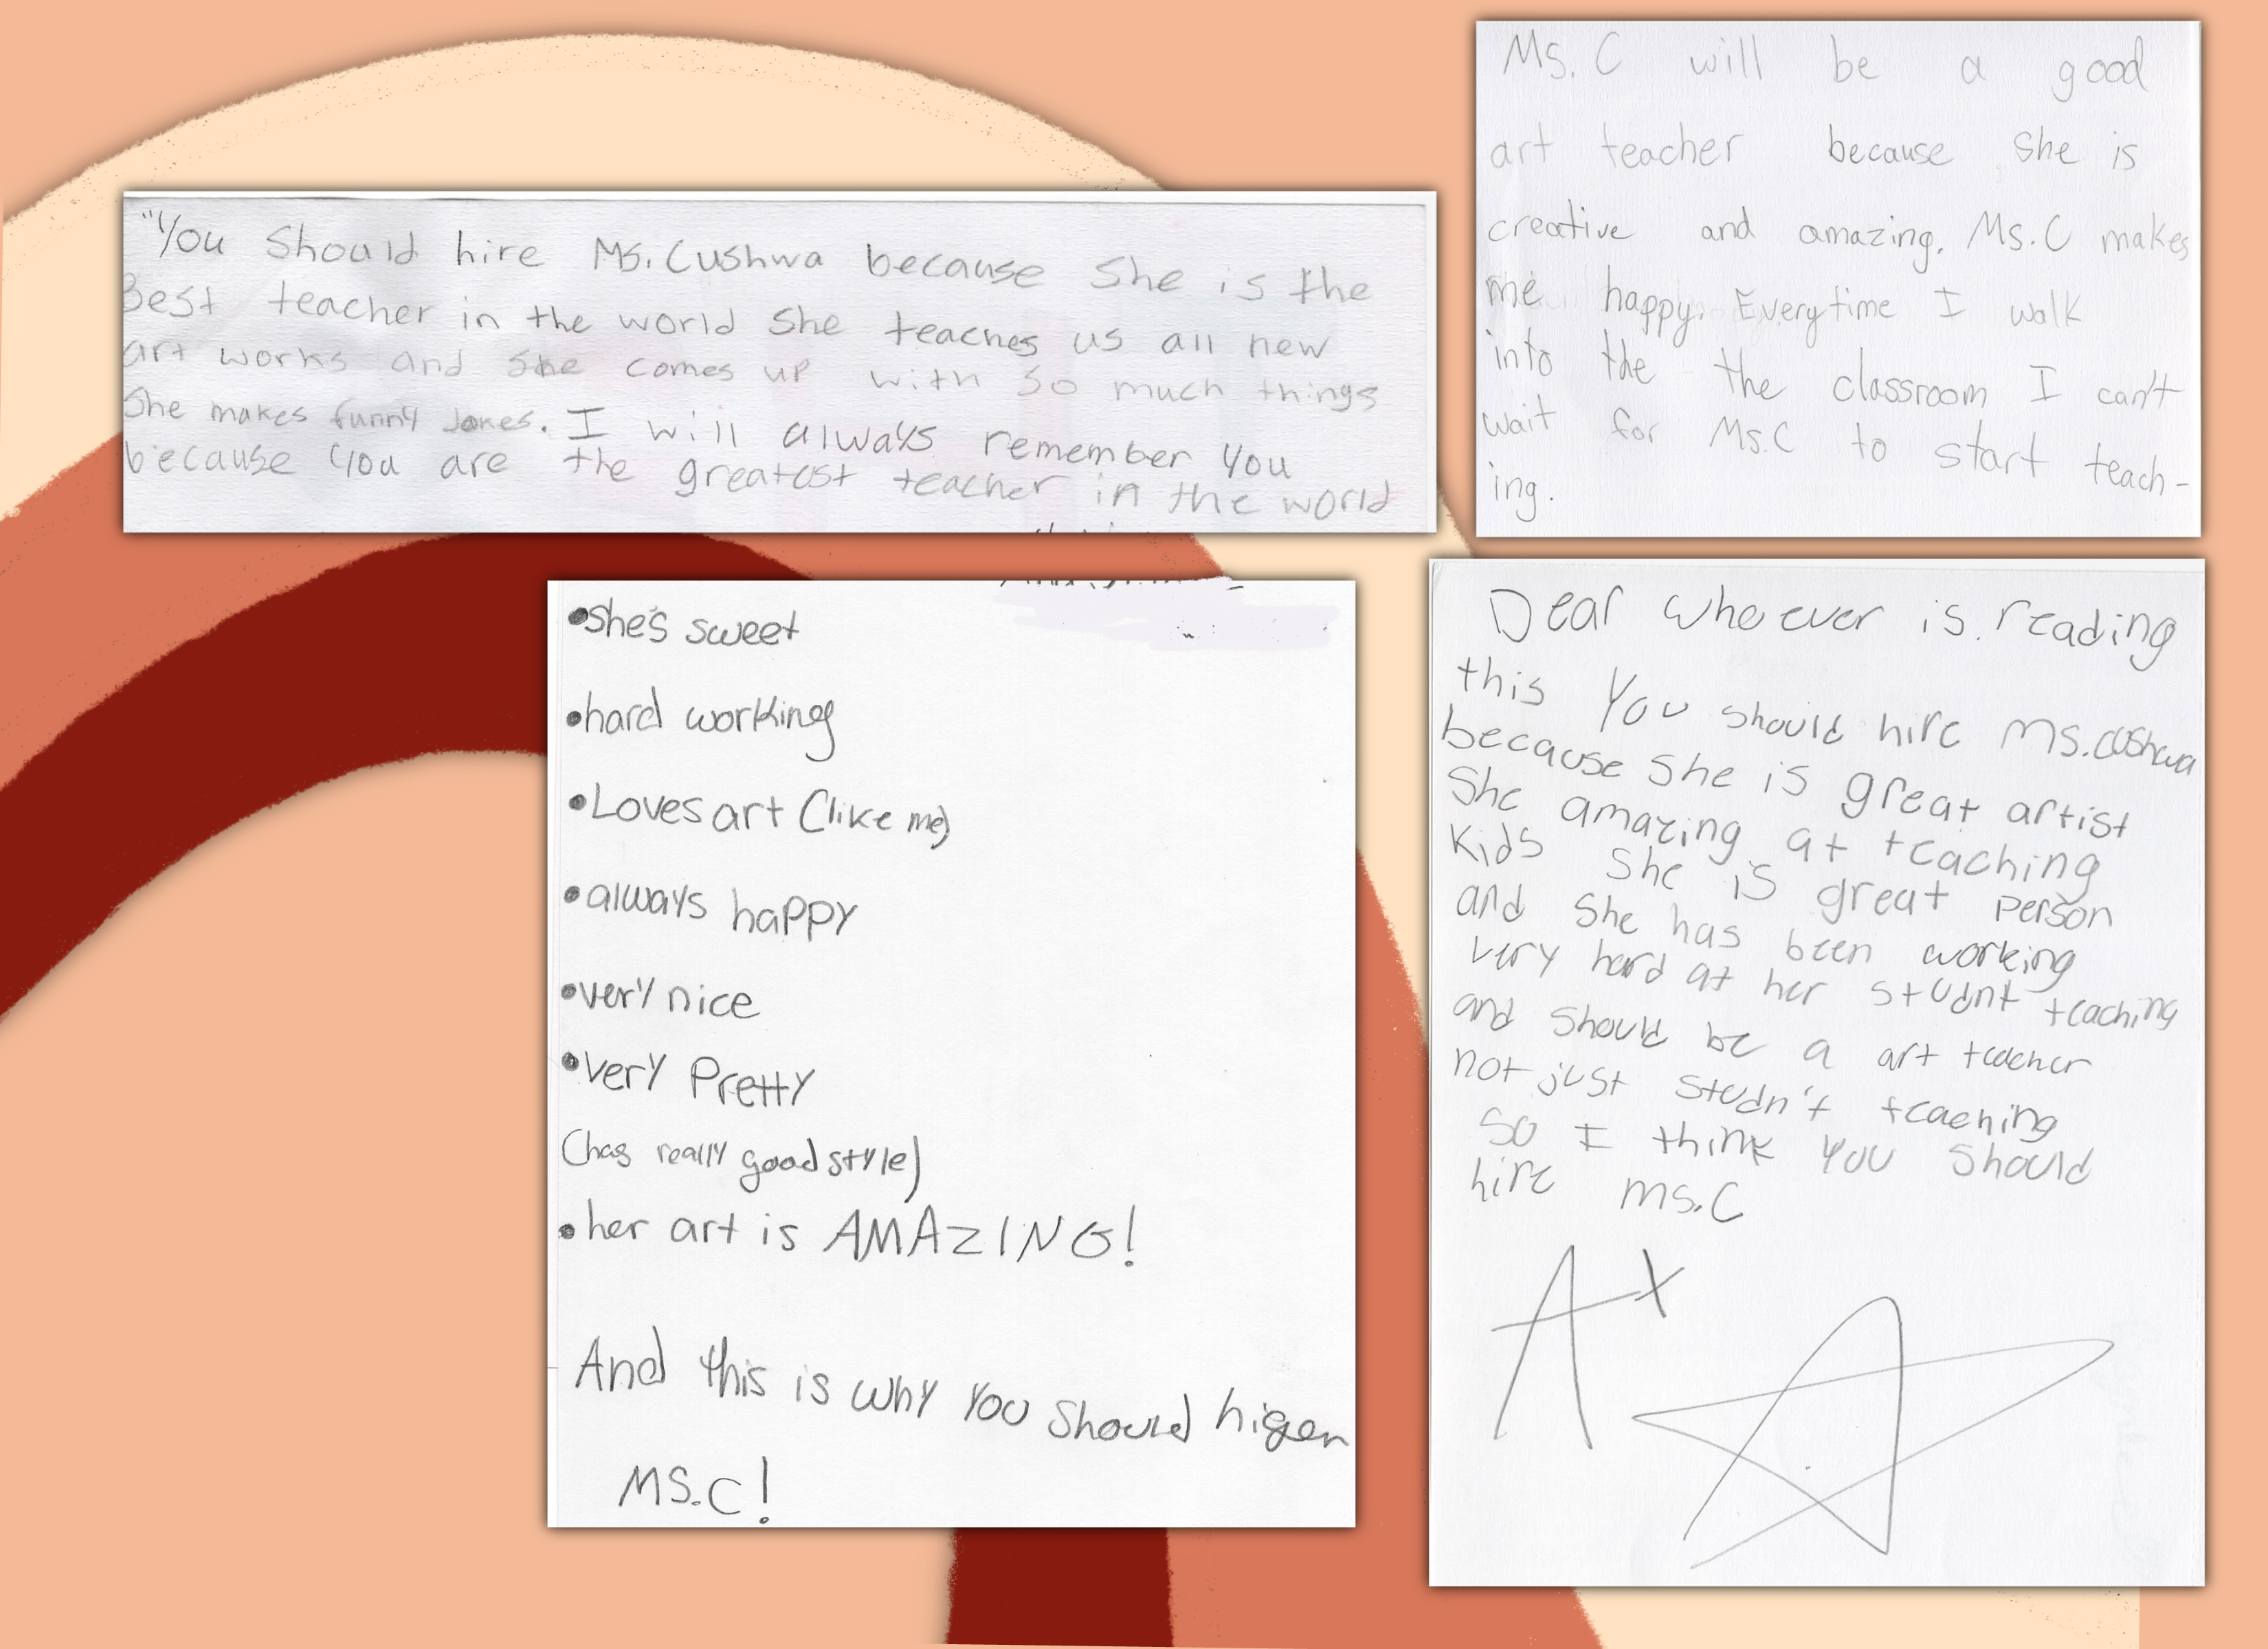 "You should hire Ms. Cushwa because she is the
Best teacher in the world she teaches us all new
art works and she comes up with so much things
She makes funny Jokes. I will always remember you
because you are the greatest teacher in the world
Ms. C will be a good
art teacher because she is
creative and amazing. Ms. C makes
me happy. Everytime I walk
into the the classroom I can't
wait for Ms.C to start teach-
ing.
•she's sweet
•hard working
•Loves art (like me)
•always happy
•very nice
•very Pretty
(has really good style)
•her art is AMAZING!
And this is why you should higer
MS.C!
Dear whoever is reading
this You should hire Ms.Cushwa
because she is great artist
She amazing at teaching
kids she is great person
and she has been working
very hard at her studnt teaching
and should be a art teacher
not just studn't teaching
So I think you should
hire Ms.C
A+